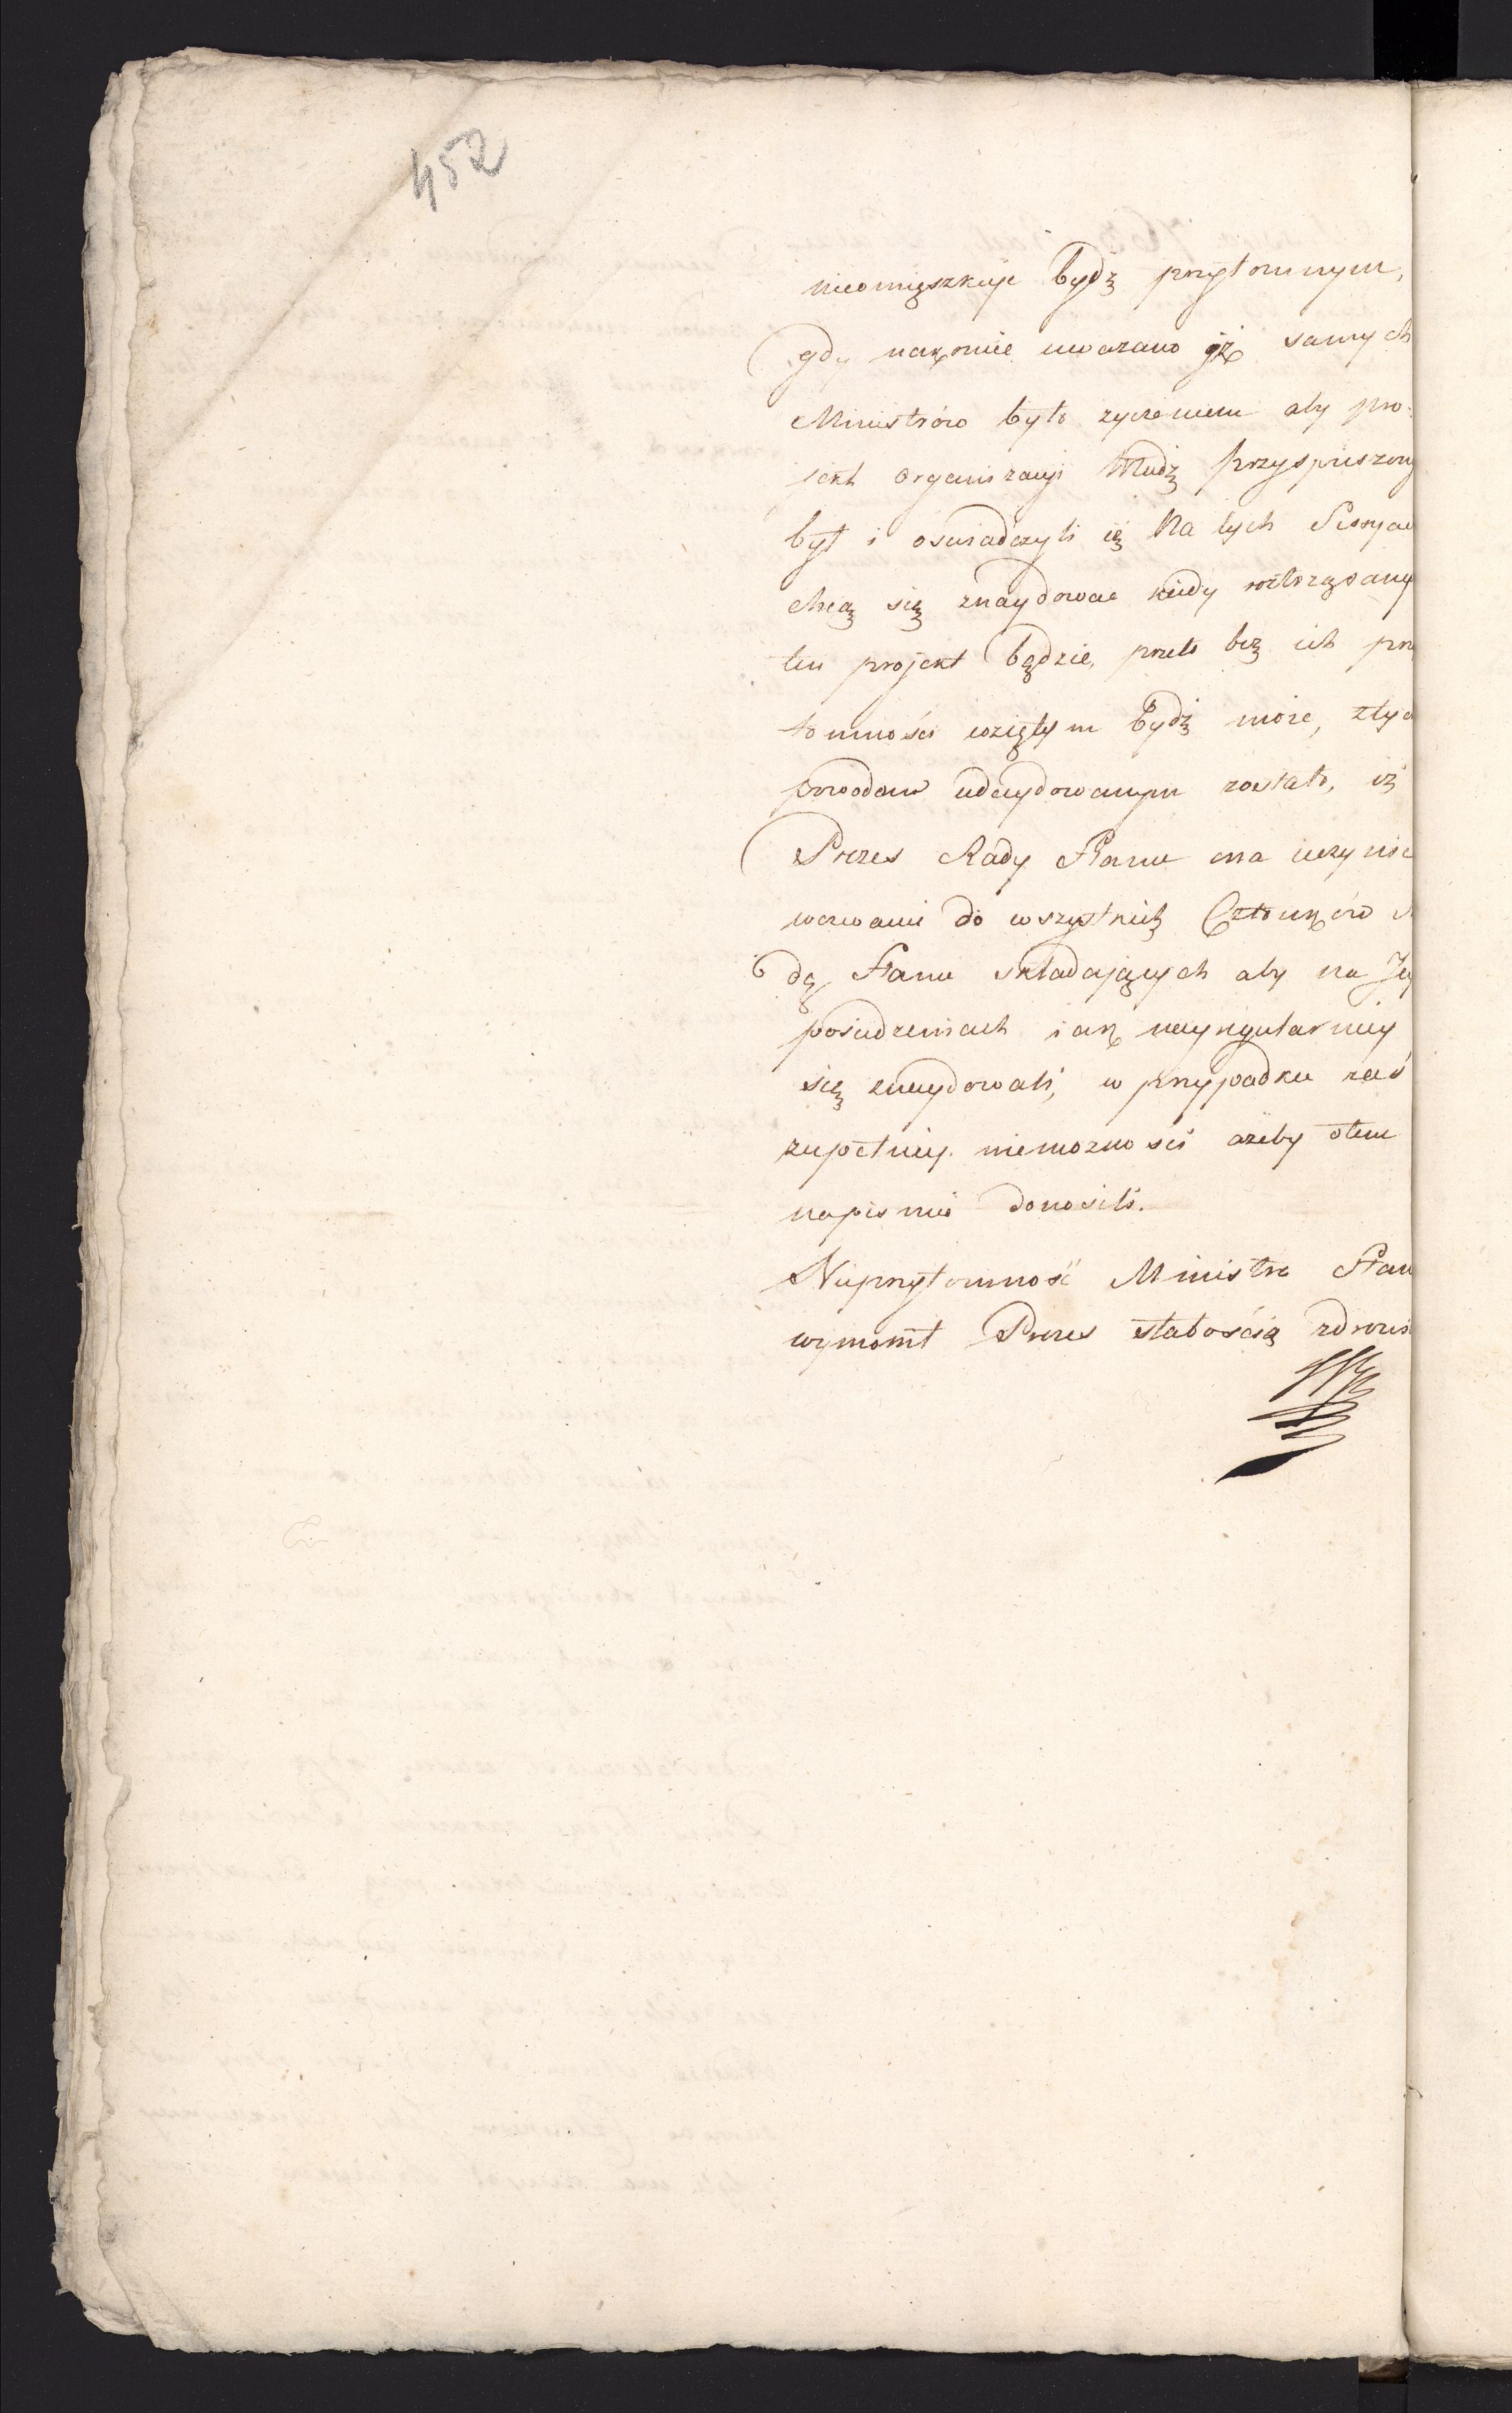 452
nieomięszkuje bydź przytomnym,
gdy nakoniec uwazano iż samych
Ministrów było zyczeniem aby pro-
jekt organizacyi Władz przyspieszony
był i oswiadczyli iż Na tych Sessyac
chcą się znaydowac kiedy roztrząsany
ten projekt będzie, przeto bez ich prz
tomności wziętym bydź może, z tych
powodow zdecydowanym zostało, iż
Prezes Rady Stanu ma uczynić
wezwanie do wszystkich Członków
dę Stanu składających aby na Jey
posiedzeniach iak nayregularniey
się znaydowali, w przypadku zaś
zupełney niemozności azeby o tem
napismie donosili.
Nieprzytomność Ministra Stan
wymowił Prezes słabością zdrowia